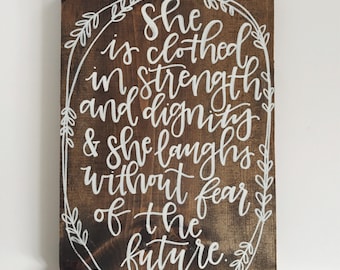 She
is clothed
in strength
and dignity
& she laughs
without fear
of the
future.